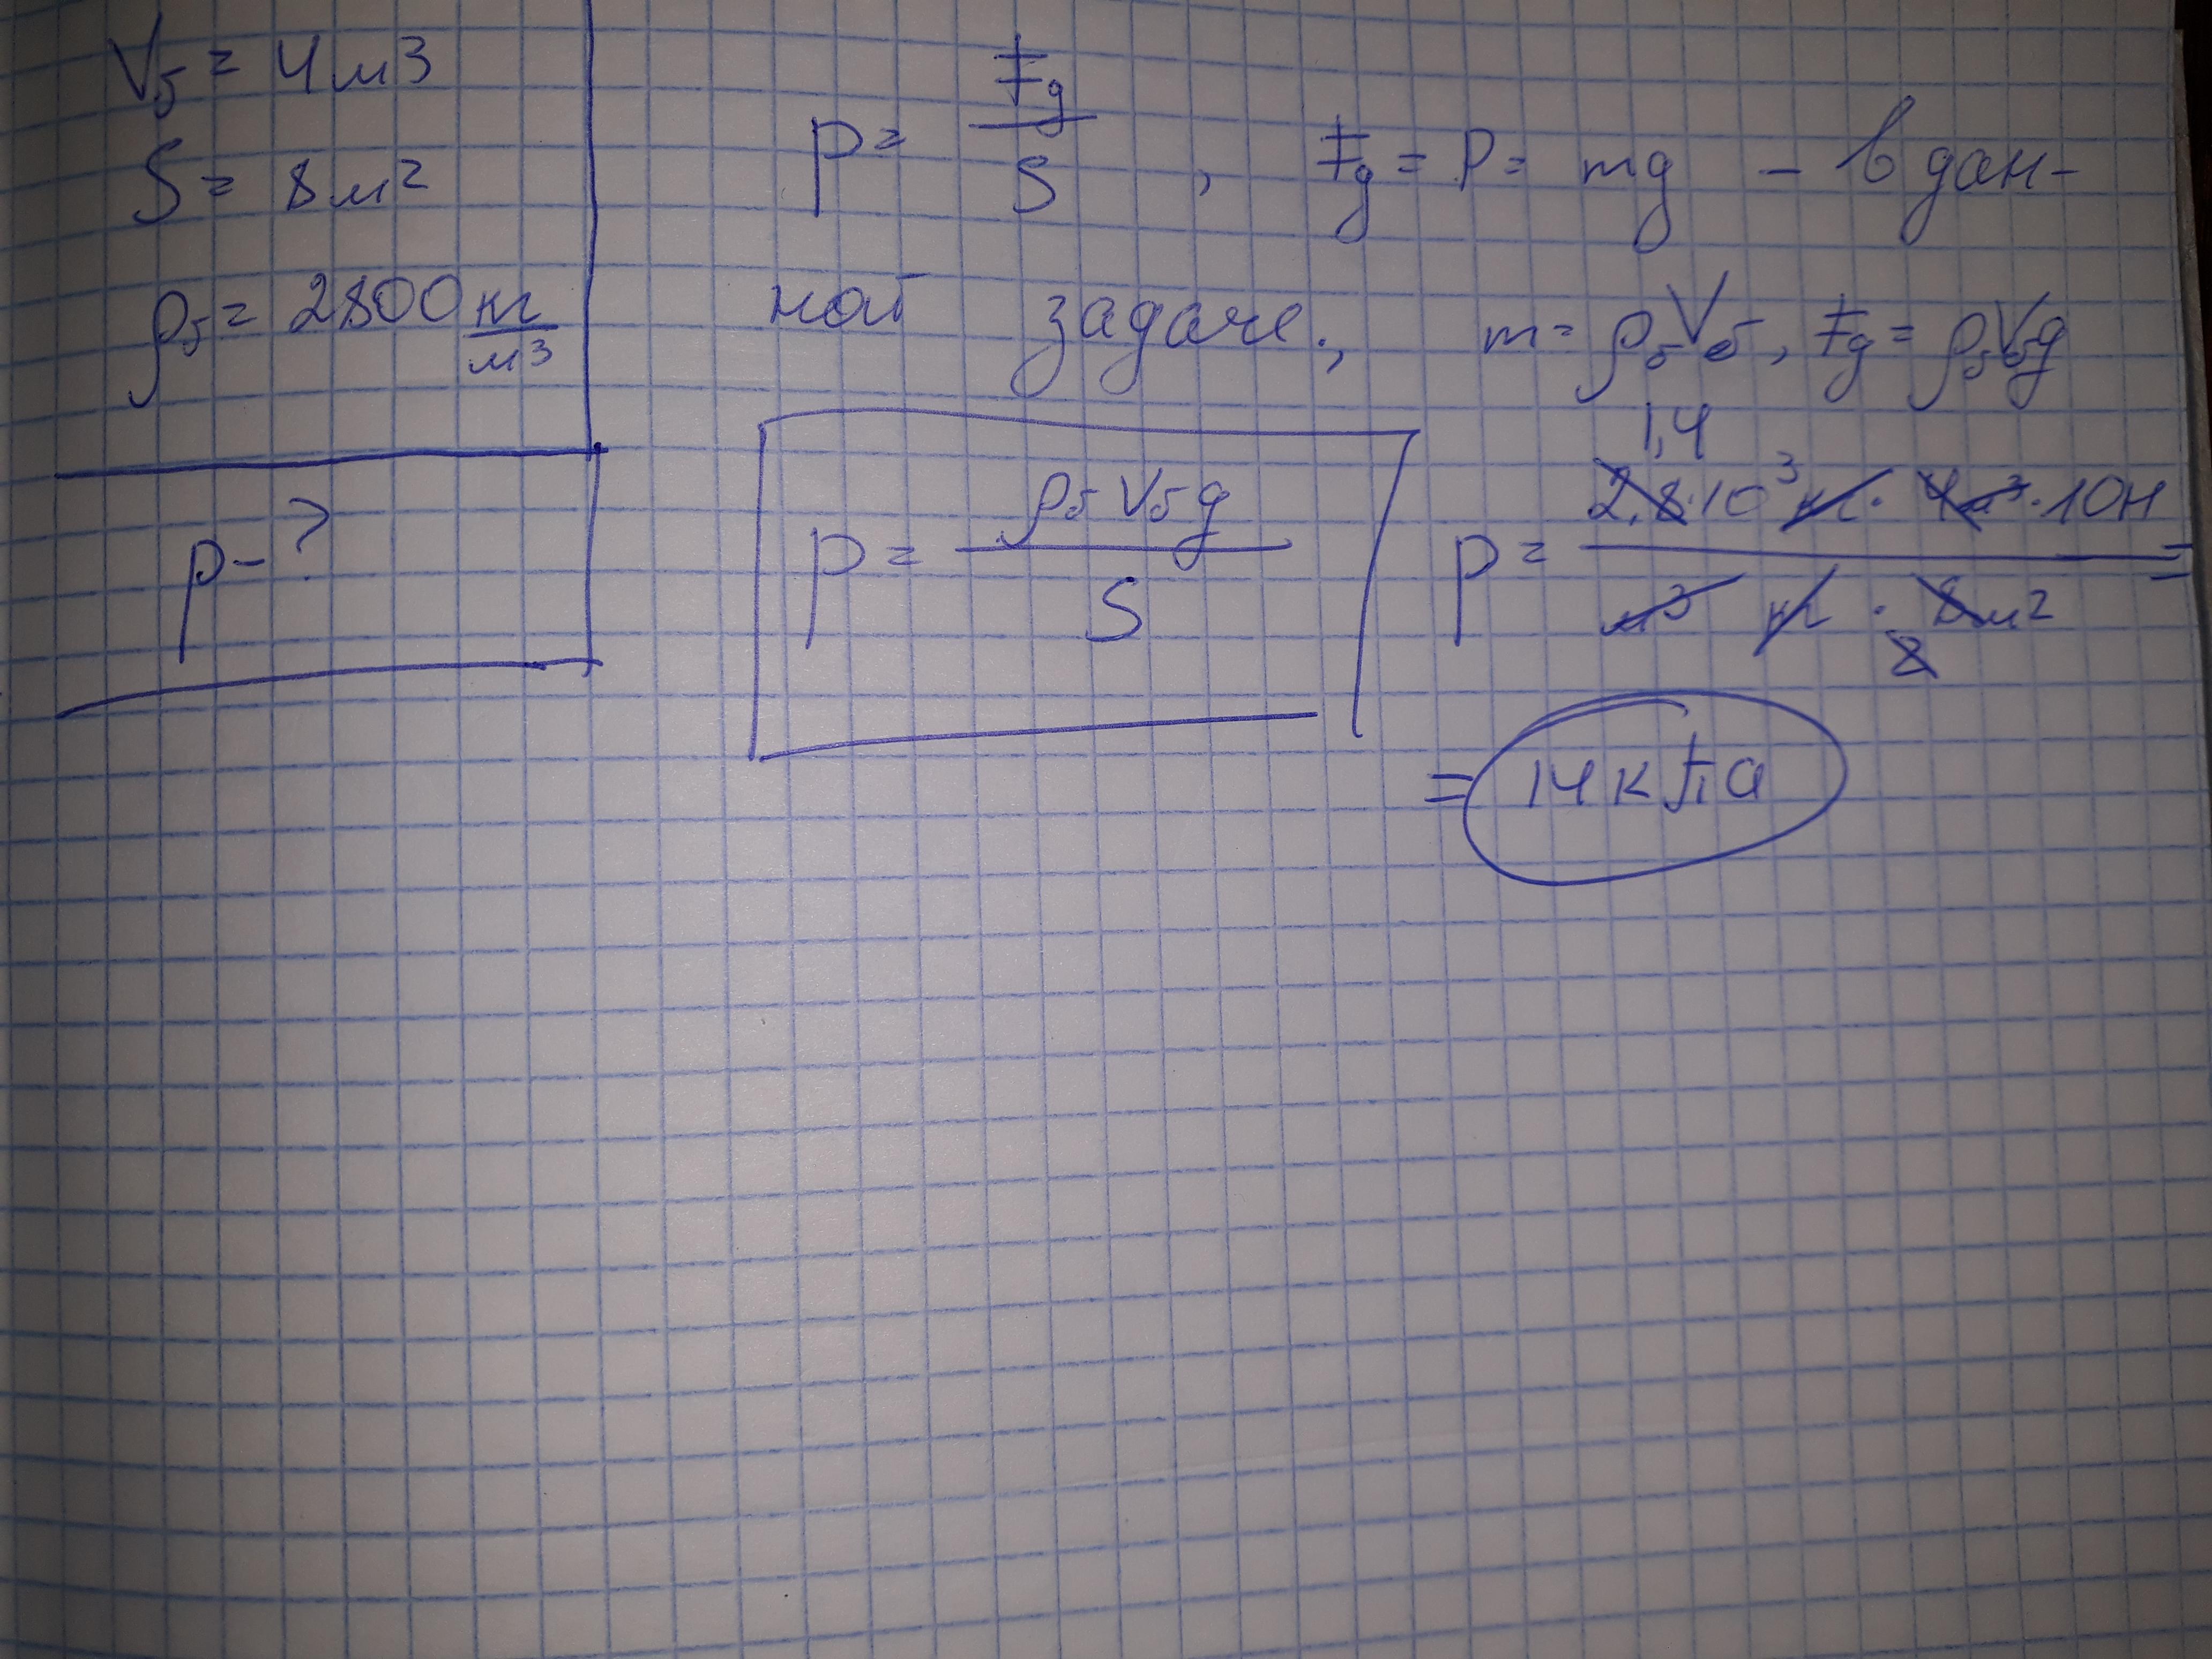 Vб = 4 м3
S = 8 м²
ρб = 2800 кг/м³
p - ?
p = Fg/S , Fg = P = mg - в дан-
ной задаче., m = ρб Vб, Fg = ρбVбg
p = ρб Vб g/S
1,4
p = 2,8·10³ кг· 4м³·10Н/м³ кг · 8м² =
2
= 14 кПа